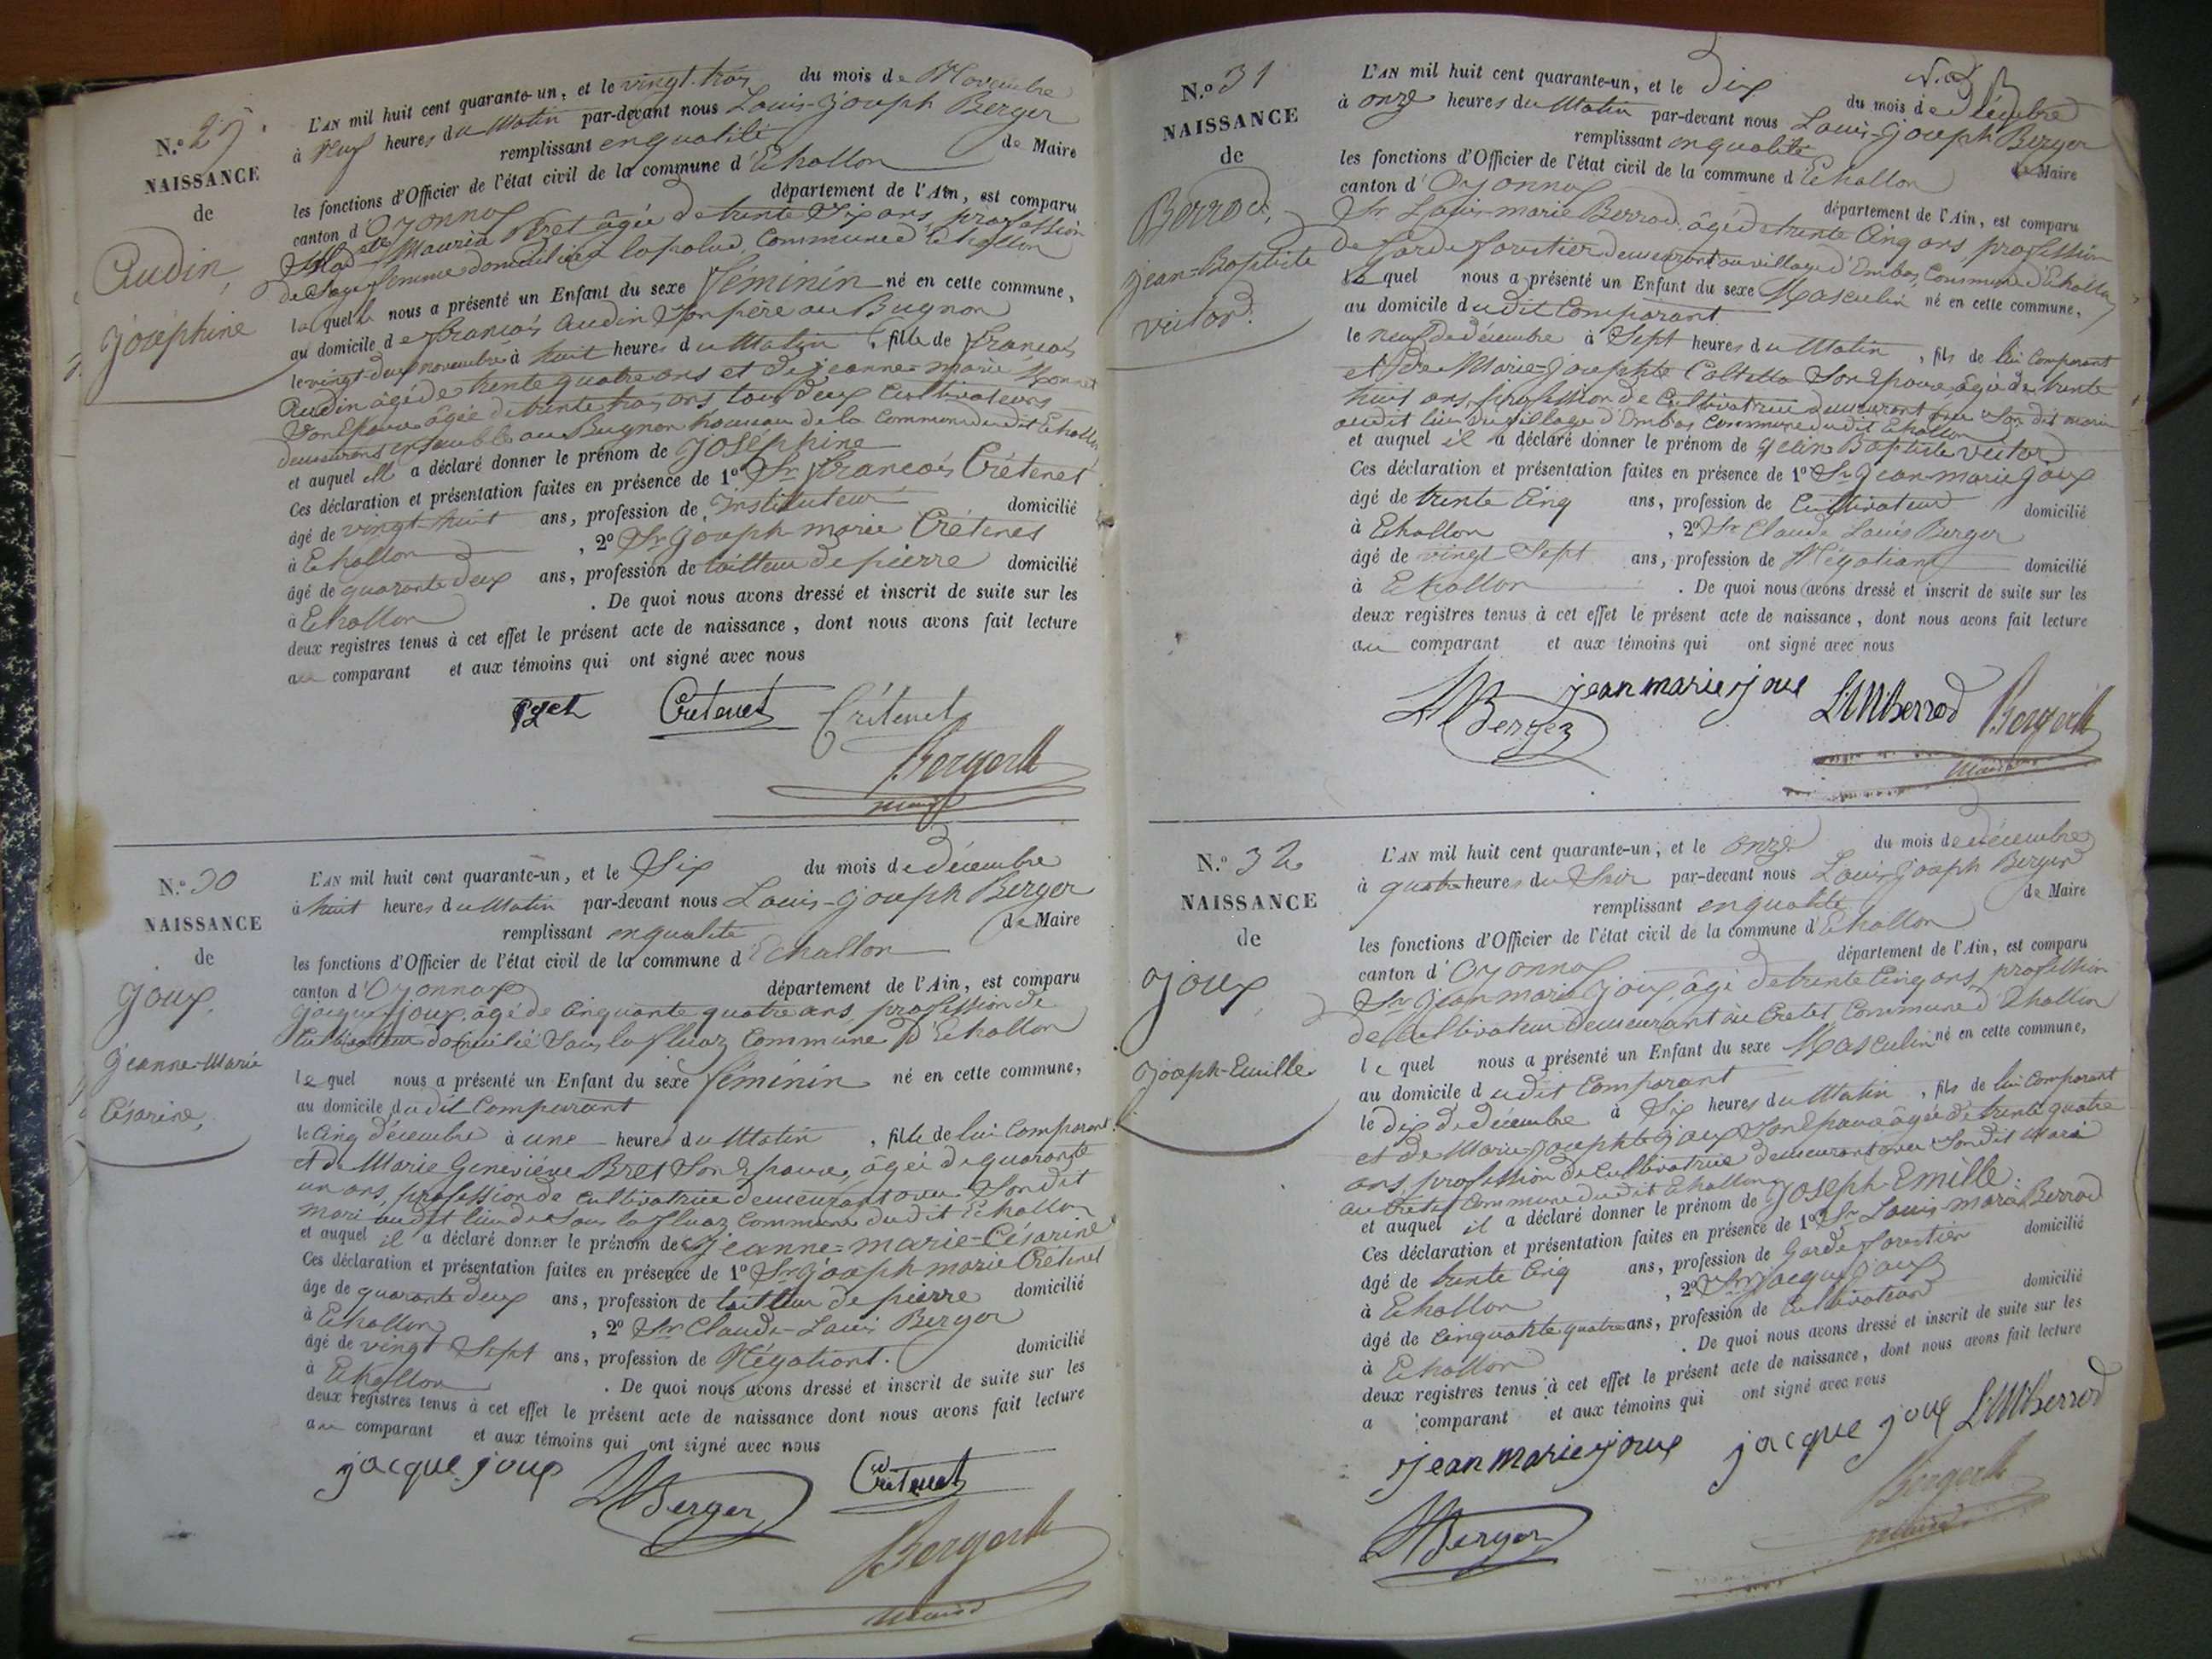 N.º 29
NAISSANCE
de
Audin,
Joséphine
L'AN mil huit cent quarante-un, et le vingt-trois du mois de Novembre
à Neuf heures du Matin par-devant nous Louis-Joseph Berger
remplissant en qualité de Maire
les fonctions d'Officier de l'état civil de la commune d'Echallon
canton d'Oyonnax département de l'Ain, est comparu
âgée de trente six ans, profession
de Sage femme domiciliée à lapalud, Commune d'Echallon
laquelle nous a présenté un Enfant du sexe féminin né en cette commune,
au domicile de françois Audin Son père au Bugnon
le vingt-deux novembre à huit heures du Matin, fille de françois
Audin âgé de trente quatre ans et de jeanne-marie
Son Epouse âgée de trente trois ans tous deux Cultivateurs
demeurans ensemble au Bugnon hameau de la Commune dudit Echallon
et auquel elle a déclaré donner le prénom de Joséphine
Ces déclaration et présentation faites en présence de 1º Sr françois Crétenet
âgé de vingt-huit ans, profession de Instituteur domicilié
à Echallon, 2º Sr Joseph-marie Crétenet
âgé de quarante deux ans, profession de tailleur de pierre domicilié
à Echallon. De quoi nous avons dressé et inscrit de suite sur les
deux registres tenus à cet effet le présent acte de naissance, dont nous avons fait lecture
au comparant et aux témoins qui ont signé avec nous
Crétenet Crétenet
Berger
maire
N.º 30
NAISSANCE
de
Joux,
Jeanne-Marie
Césarine,
L'AN mil huit cent quarante-un, et le Six du mois de décembre
à huit heures du Matin par-devant nous Louis-Joseph Berger
remplissant en qualité de Maire
les fonctions d'Officier de l'état civil de la commune d'Echallon
canton d'Oyonnax département de l'Ain, est comparu
Jacque Joux, âgé de Cinquante quatre ans, profession de
Cultivateur domicilié Sous la fluaz Commune d'Echallon
lequel nous a présenté un Enfant du sexe féminin né en cette commune,
au domicile dudit Comparant
le Cinq décembre à une heure du Matin, fille de lui Comparant
et de Marie Geneviéve Bret Son Epouse, âgée de quarante
un ans, profession de Cultivatrice demeurant avec Sondit
mari audit lieu de Sous la fluaz Commune dudit Echallon
et auquel il a déclaré donner le prénom de Jeanne-marie-Césarine
Ces déclaration et présentation faites en présence de 1º Sr Joseph-marie Crétenet
âgé de quarante deux ans, profession de tailleur de pierre domicilié
à Echallon, 2º Sr Claude-Louis Berger
âgé de vingt Sept ans, profession de Négotiant. domicilié
à Echallon. De quoi nous avons dressé et inscrit de suite sur les
deux registres tenus à cet effet le présent acte de naissance dont nous avons fait lecture
au comparant et aux témoins qui ont signé avec nous
jacque joux Berger Crétenet
Berger
maire
N.º 31
NAISSANCE
de
Berrod,
Jean-Baptiste
victor.
L'AN mil huit cent quarante-un, et le Dix du mois de décembre
à onze heures du Matin par-devant nous Louis-Joseph Berger
remplissant en qualité de Maire
les fonctions d'Officier de l'état civil de la commune d'Echallon
canton d'Oyonnax département de l'Ain, est comparu
Sr Louis-marie Berrod, âgé de trente Cinq ans, profession
de Garde forestier demeurant au village d', Commune d'Echallon
lequel nous a présenté un Enfant du sexe Masculin né en cette commune,
au domicile dudit Comparant
le neuf de décembre à Sept heures du Matin, fils de lui Comparant
et de Marie-Josephte Son Epouse, âgée de trente
huit ans, profession de Cultivatrice demeurant avec Son dit mari
audit lieu du village d' Commune dudit Echallon
et auquel il a déclaré donner le prénom de Jean Baptiste victor
Ces déclaration et présentation faites en présence de 1º Sr Jean-marie Joux
âgé de trente Cinq ans, profession de Cultivateur domicilié
à Echallon, 2º Sr Claude Louis Berger
âgé de vingt Sept ans, profession de Négotiant domicilié
à Echallon. De quoi nous avons dressé et inscrit de suite sur les
deux registres tenus à cet effet le présent acte de naissance, dont nous avons fait lecture
au comparant et aux témoins qui ont signé avec nous
Berger jean marie joux L M Berrod Berger
maire
N.º 32
NAISSANCE
de
Joux,
Joseph-Emille
L'AN mil huit cent quarante-un, et le onze du mois de décembre
à quatre heures du Soir par-devant nous Louis Joseph Berger
remplissant en qualité de Maire
les fonctions d'Officier de l'état civil de la commune d'Echallon
canton d'Oyonnax département de l'Ain, est comparu
Sr Jean-marie Joux, âgé de trente Cinq ans, profession
de Cultivateur demeurant au Cretet Commune d'Echallon
lequel nous a présenté un Enfant du sexe Masculin né en cette commune,
au domicile dudit Comparant
le dix de décembre à Six heures du Matin, fils de lui Comparant
et de Marie-Josephte Joux Son Epouse âgée de trente quatre
ans, profession de Cultivatrice demeurant avec Sondit Mari
au Cretet Commune dudit Echallon
et auquel il a déclaré donner le prénom de Joseph-Emille.
Ces déclaration et présentation faites en présence de 1º Sr Louis-marie Berrod
âgé de trente Cinq ans, profession de Garde forestier domicilié
à Echallon, 2º Sr Jacque Joux
âgé de Cinquante quatre ans, profession de Cultivateur domicilié
à Echallon. De quoi nous avons dressé et inscrit de suite sur les
deux registres tenus à cet effet le présent acte de naissance, dont nous avons fait lecture
a comparant et aux témoins qui ont signé avec nous
jean marie joux jacque joux L M Berrod
Berger
Berger
maire